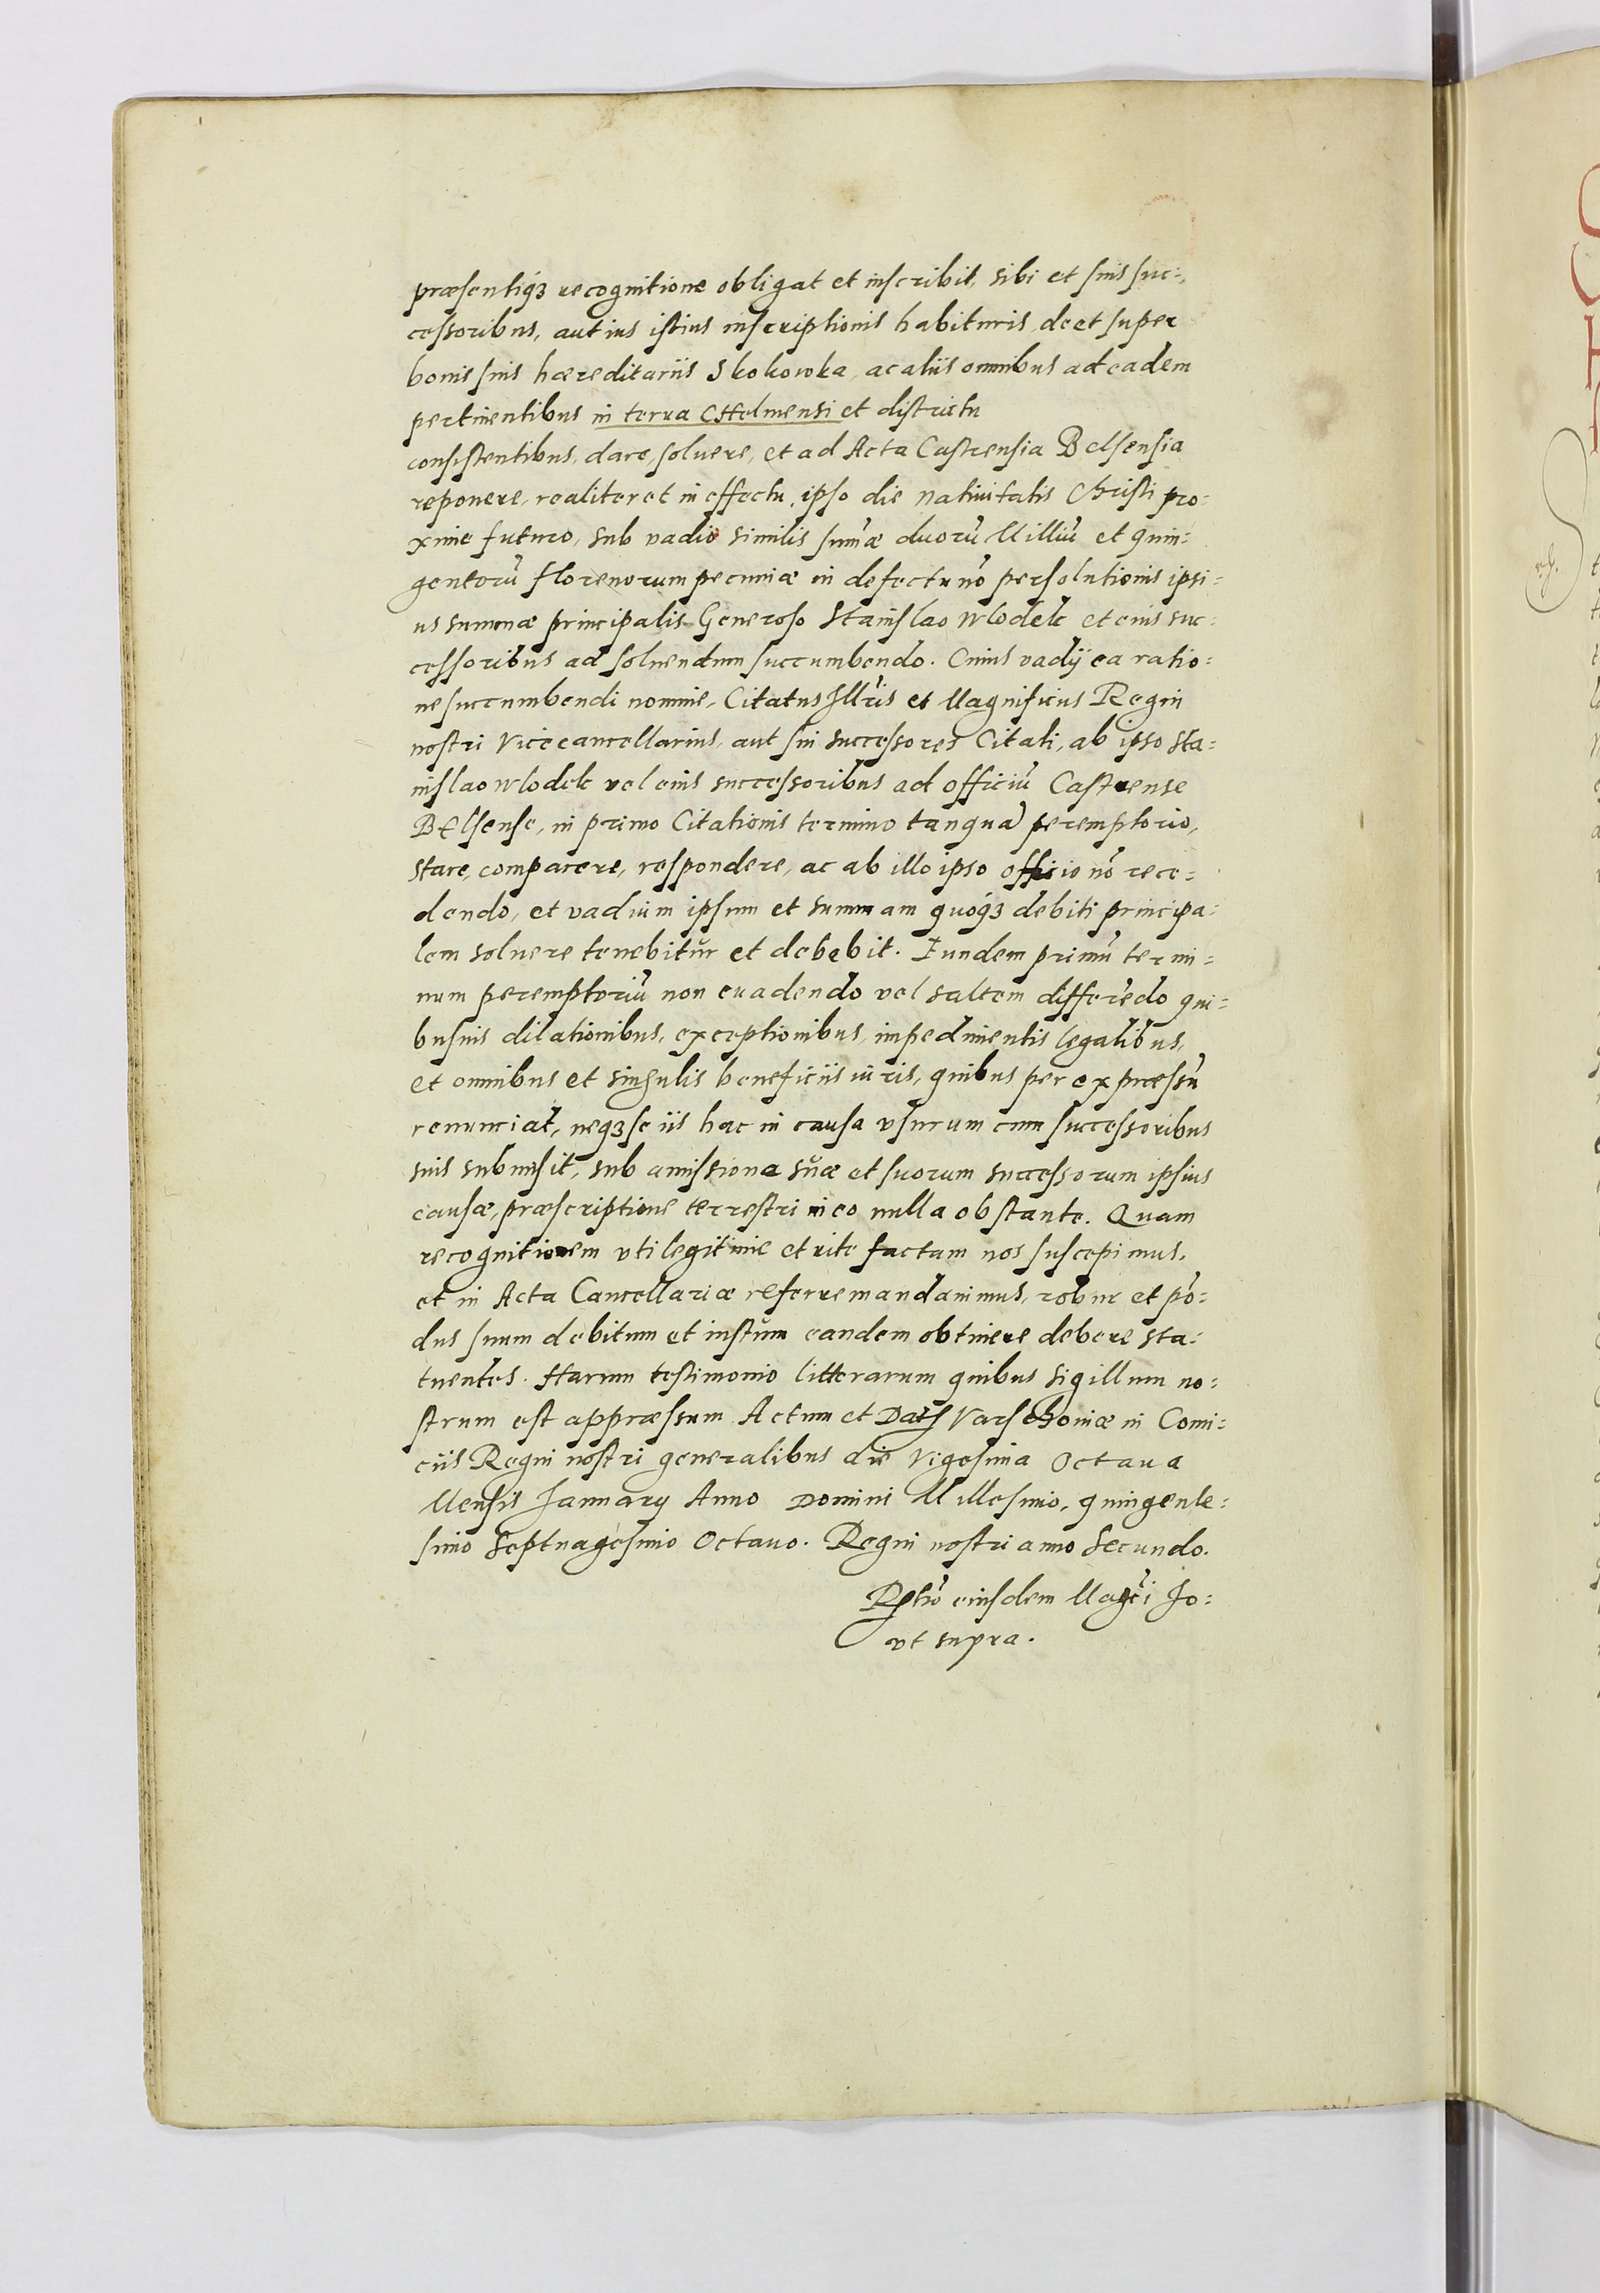 præsentiq3 recognitione obligat et inscribit, sibi et suis suc:
cessoribus, aut ius istius inscriptionis habituris de et super
bonis suis hæreditariis Skokowka, ac aliis omnibus ad eadem
pertinentibus in terra CHelmensi et districtu
consistentibus, dare, soluere, et ad Acta Castrensia Belsensia
reponere, realiter et in effectu, ipso die Natiuitatis Christi pro:
xime futuro, sub vadio similis sum̄æ duorū Milliū et quin:
gentorū florenorum pecuniæ in defectu nō persolutionis ipsi:
us summæ principalis Generoso Stanislao Wlodek et eius suc:
cessoribus ad soluendum succumbendo. Cuius vadij ea ratio:
ne succumbendi nomine, Citatus Illris et Magnificus Regni
nostri Vicecancellarius, aut sui successores Citati, ab ipso Sta:
nislao Wlodek vel eius successoribus ad officiū Castrense
BElsense, in primo Citationis termino tanquā peremptorio,
stare, comparere, respondere, ac ab illo ipso officio nō rece:
dendo, et vadium ipsum et summam quoq3 debiti principa:
lem soluere tenebitur et debebit. Eundem primū termi:
num peremptoriū non euadendo vel saltem differēdo qui:
busuis dilationibus, exceptionibus, impedimentis legalibus,
et omnibus et singulis beneficiis iuris, quibus per expræssū
renunciat, neq3 se iis hac in causa vsurum cum successoribus
suis submisit, sub amissione suæ et suorum successorum ipsius
causæ, præscriptione terrestri in eo nulla obstante. Quam
recognitionem vti legitime et rite factam nos suscepimus,
et in Acta Cancellariæ referre mandauimus, robur et pō:
dus suum debitum et iustum eandem obtinere debere sta:
tuentes. Harum testimonio litterarum quibus sigillum no:
strum est appræssum Actum et Dat Varschouiæ in Comi:
ciis Regni nostri generalibus die Vigesima Octaua
Mensis Januarij Anno Domini Millesimo, quingente:
simo Septuagesimo Octauo. Regni nostri anno Secundo.
eiusdem Magci Jo:
vt supra.